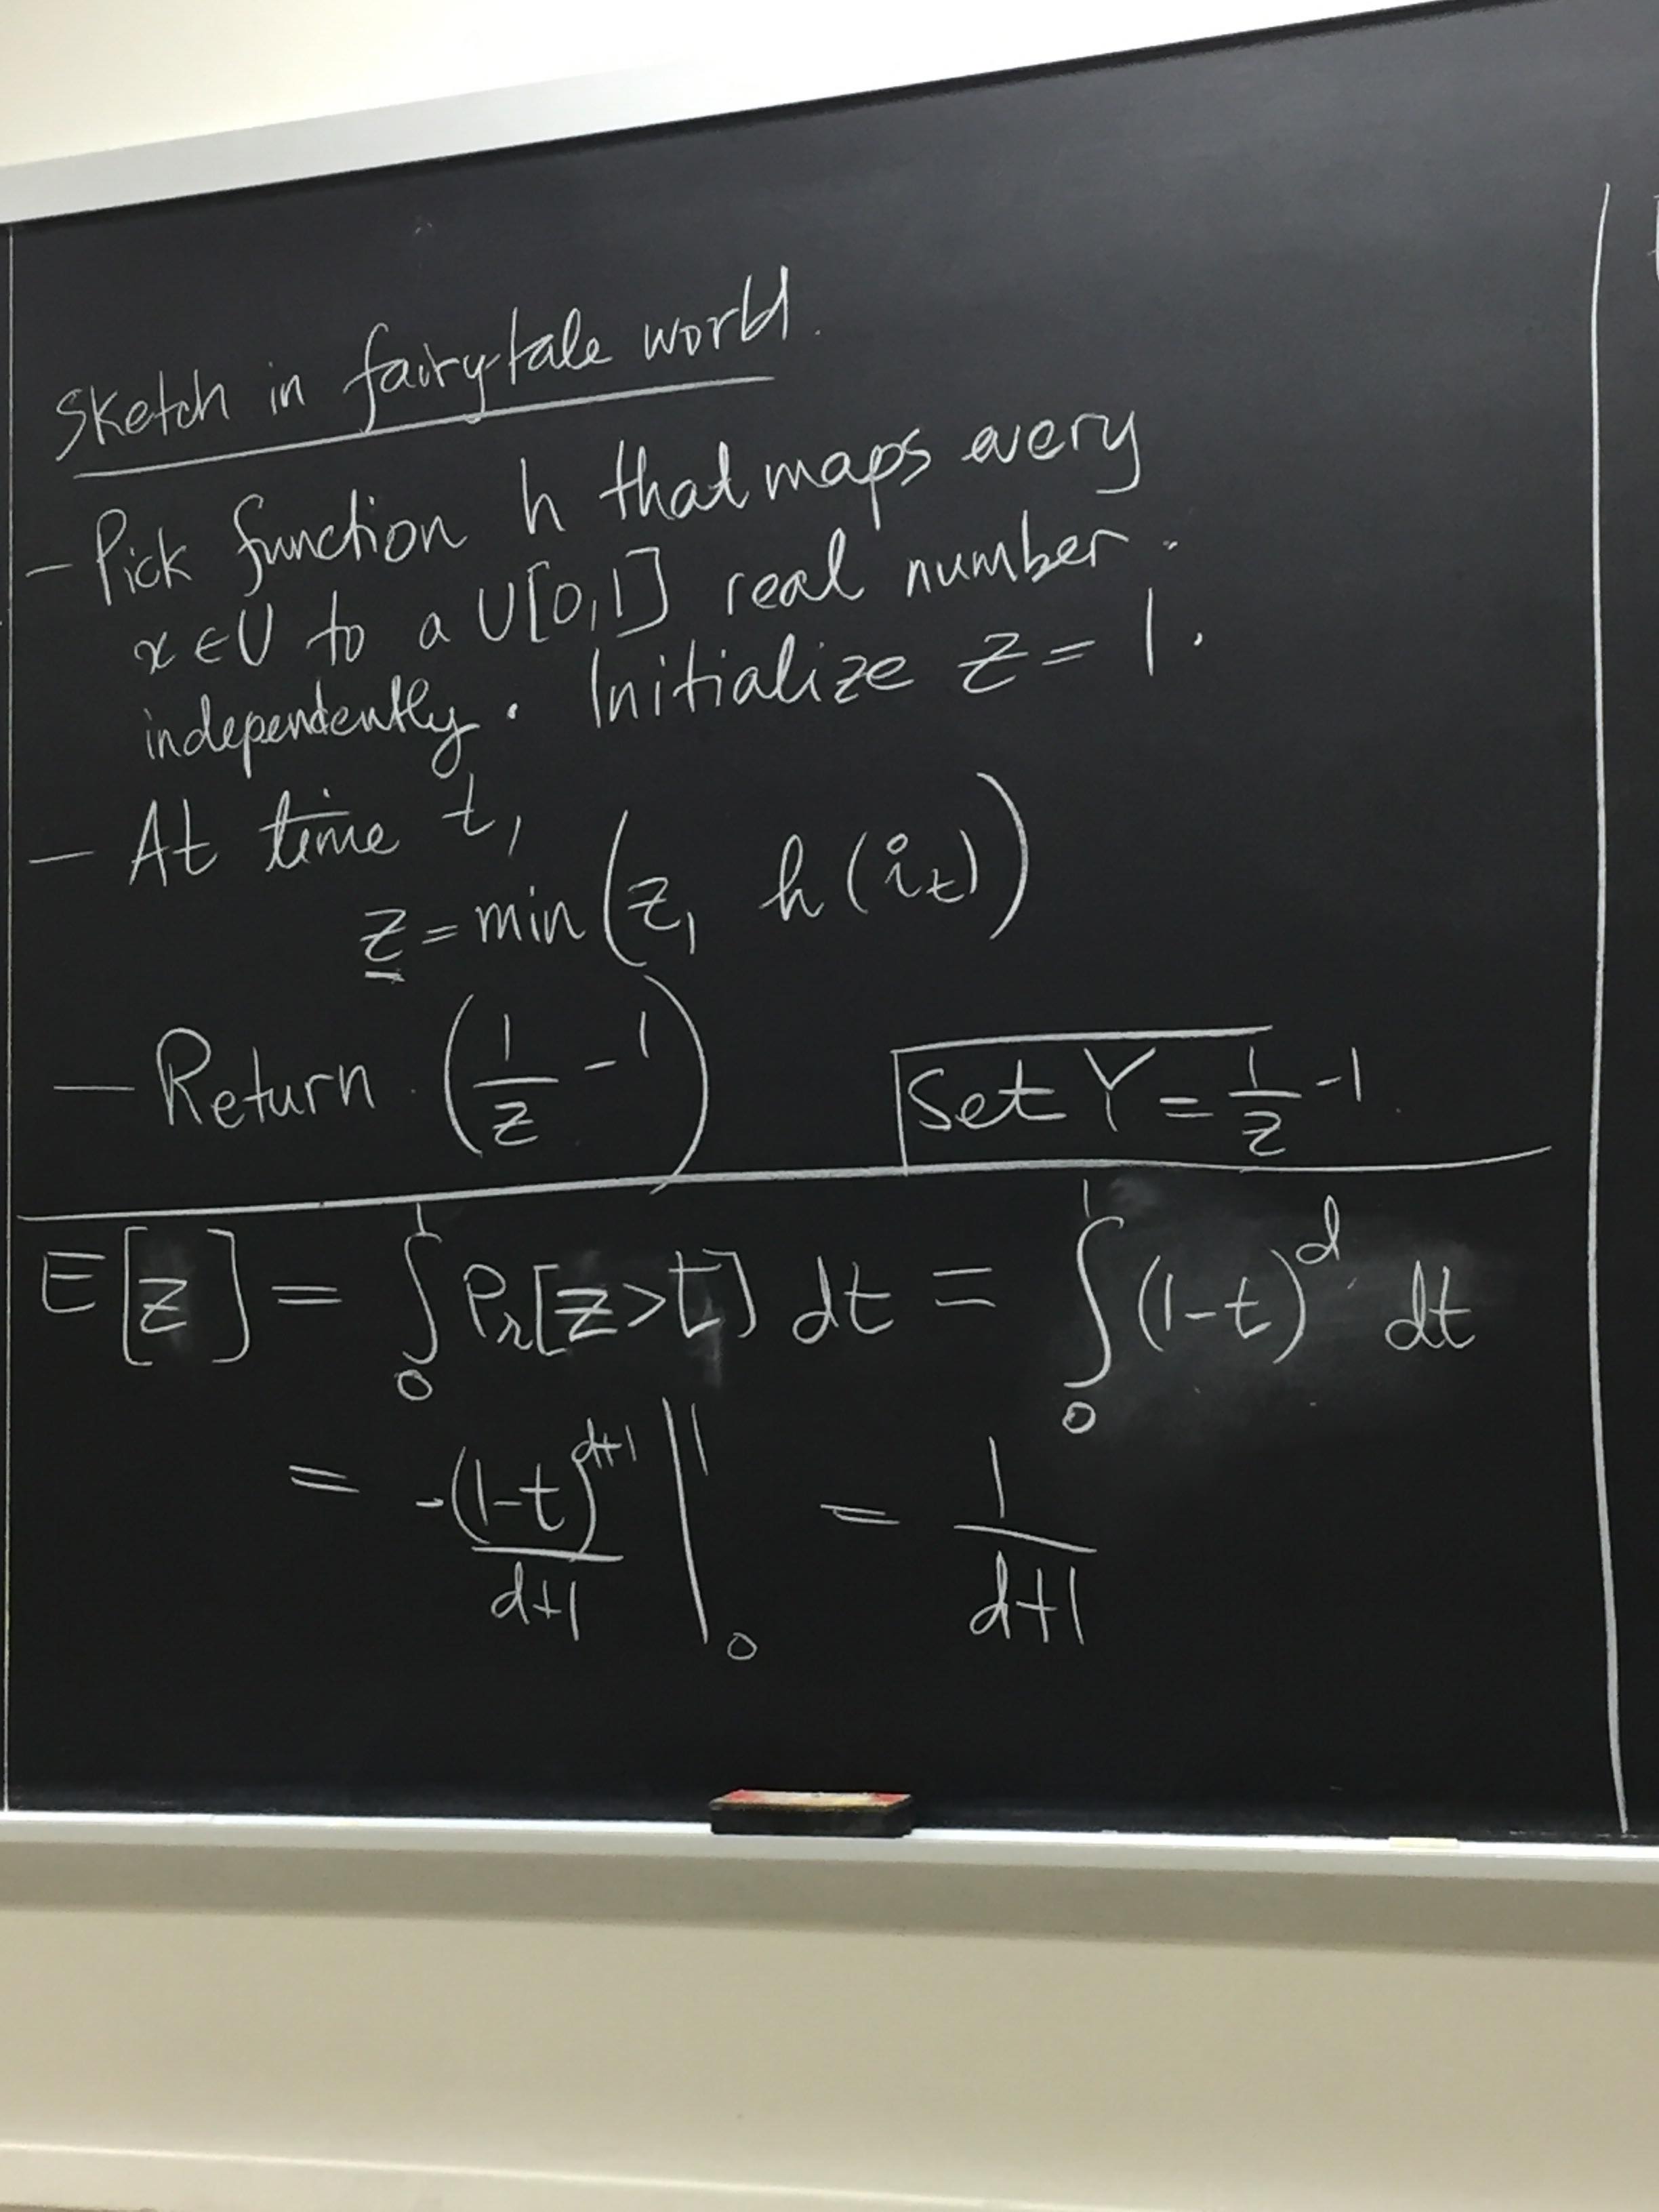 Sketch in fairytale world.
- Pick function h that maps every
x ∈ U to a U[0,1] real number.
independently. Initialize z = 1.
- At time t,
z = min(z, h(i_t))
- Return (1/z - 1) Set Y = 1/z - 1
E[z] = ∫_0^1 Pr[z > t] dt = ∫_0^1 (1-t)^d dt
= -(1-t)^{d+1}/(d+1) |_0^1 = 1/(d+1)